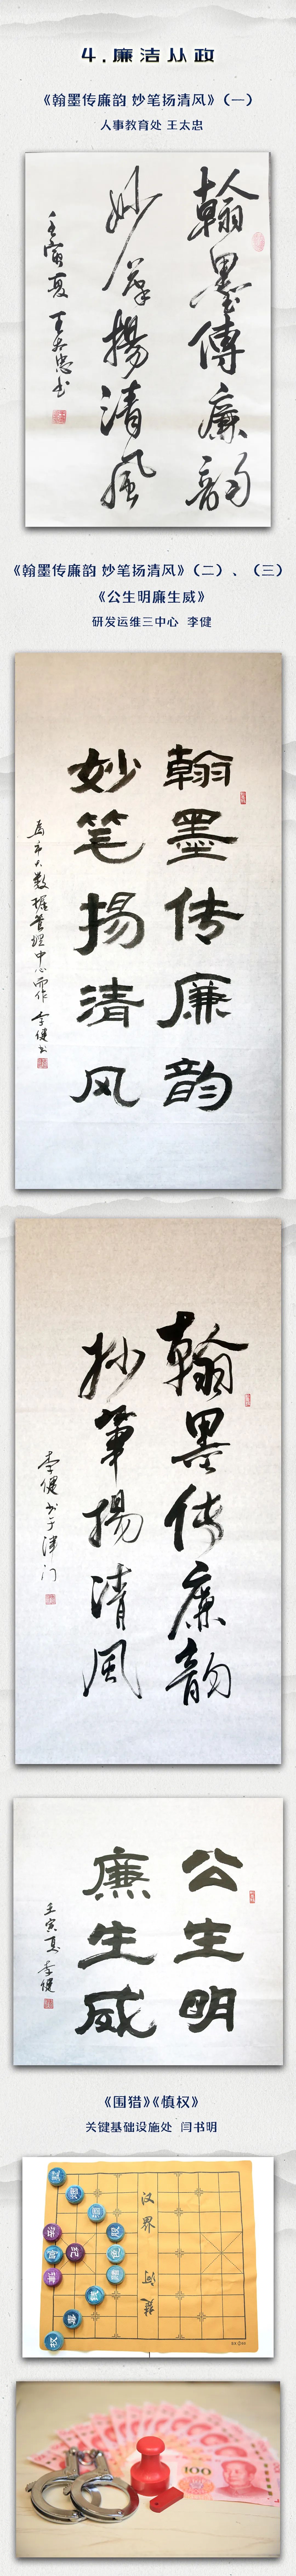 4.廉洁从政
《翰墨传廉韵 妙笔扬清风》（一）
人事教育处 王太忠
翰墨傳廉韵
妙筆揚清風
壬寅夏 王太忠书
《翰墨传廉韵 妙笔扬清风》（二）、（三）
《公生明廉生威》
研发运维三中心 李健
翰墨传廉韵
妙笔扬清风
为市大数据管理中心而作 李健书
翰墨传廉韵
妙筆揚清風
李健书于津门
公生明
廉生威
壬寅夏 李健
《围猎》《慎权》
关键基础设施处 闫书明
汉界
河
楚
100